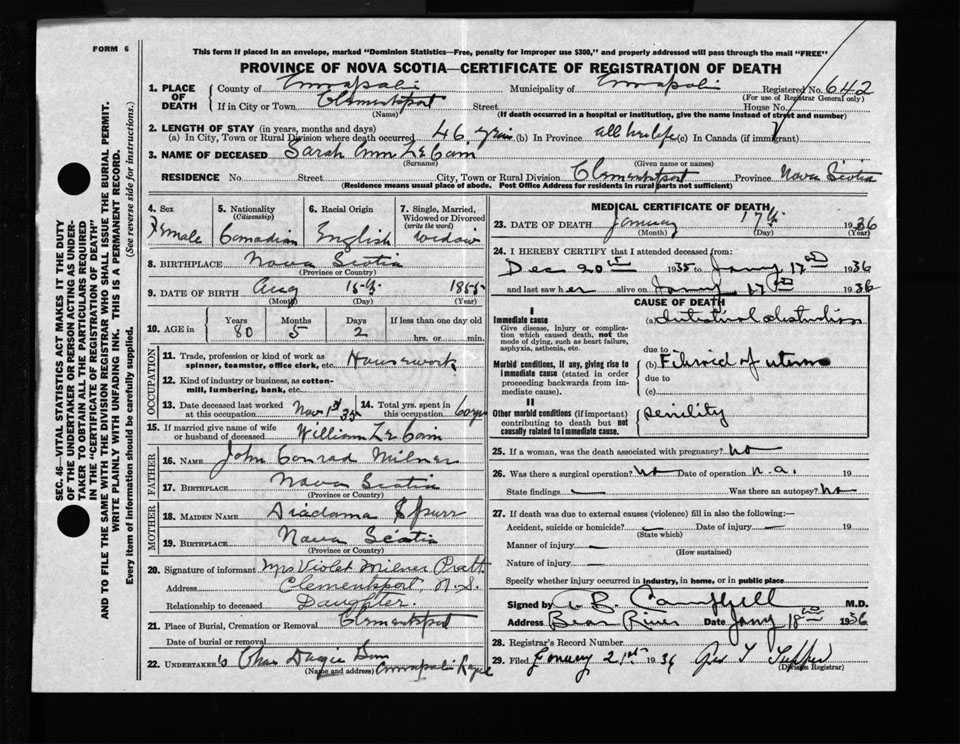 FORM 6
This form if placed in an envelope, marked "Dominion Statistics—Free, penalty for improper use $300," and properly addressed will pass through the mail "FREE"
PROVINCE OF NOVA SCOTIA—CERTIFICATE OF REGISTRATION OF DEATH
1. PLACE OF DEATH County of Annapolis Municipality of Annapolis Registered No. 642
(For use of Registrar General only)
If in City or Town Clementsport Street House No.
(Name) (If death occurred in a hospital or institution, give the name instead of street and number)
2. LENGTH OF STAY (in years, months and days)
(a) In City, Town or Rural Division where death occurred 46 yrs (b) In Province all her life (c) In Canada (if immigrant)
3. NAME OF DECEASED Sarah Ann LeCain
(Surname) (Given name or names)
RESIDENCE No. Street City, Town or Rural Division Clementsport Province Nova Scotia
(Residence means usual place of abode. Post Office Address for residents in rural parts not sufficient)
4. Sex Female
5. Nationality (Citizenship) Canadian
6. Racial Origin English
7. Single, Married, Widowed or Divorced (write the word) Widow
8. BIRTHPLACE Nova Scotia
(Province or Country)
9. DATE OF BIRTH Aug 15th 1855
(Month) (Day) (Year)
10. AGE in Years 80 Months 5 Days 2 If less than one day old hrs. or min.
OCCUPATION
11. Trade, profession or kind of work as spinner, teamster, office clerk, etc. Housework
12. Kind of industry or business, as cotton-mill, lumbering, bank, etc.
13. Date deceased last worked at this occupation Nov 1st 35 14. Total yrs. spent in this occupation 60 yrs
15. If married give name of wife or husband of deceased William LeCain
FATHER
16. NAME John Conrad Milner
17. BIRTHPLACE Nova Scotia
(Province or Country)
MOTHER
18. MAIDEN NAME Diadama Spurr
19. BIRTHPLACE Nova Scotia
(Province or Country)
20. Signature of informant Mrs Violet Milner Pratt
Address Clementsport, N.S.
Relationship to deceased Daughter.
21. Place of Burial, Cremation or Removal Clementsport
Date of burial or removal
22. UNDERTAKER's Chas Son Annapolis Royal
(Name and address)
MEDICAL CERTIFICATE OF DEATH
23. DATE OF DEATH January 17th 1936
(Month) (Day) (Year)
24. I HEREBY CERTIFY that I attended deceased from:
Dec 20th 1935 to Jany 17th 1936
and last saw her alive on Jany 17th 1936
CAUSE OF DEATH
Immediate cause
Give disease, injury or complication which caused death, not the mode of dying, such as heart failure, asphyxia, asthenia, etc.
(a) Intestinal obstruction
due to
Morbid conditions, if any, giving rise to immediate cause (stated in order proceeding backwards from immediate cause).
(b) Fibroid of uterus
due to
(c)
II
Other morbid conditions (if important) contributing to death but not causally related to immediate cause. Senility
25. If a woman, was the death associated with pregnancy? No
26. Was there a surgical operation? No Date of operation n.a. 19
State findings — Was there an autopsy? No
27. If death was due to external causes (violence) fill in also the following:—
Accident, suicide or homicide? — Date of injury — 19
(State which)
Manner of injury —
(How sustained)
Nature of injury —
Specify whether injury occurred in industry, in home, or in public place
Signed by Campbell M.D.
Address Bear River Date Jany 18th 1936
28. Registrar's Record Number
29. Filed January 21st 1936 Geo T Tupper
(Division Registrar)
SEC. 46—VITAL STATISTICS ACT MAKES IT THE DUTY
OF THE UNDERTAKER OR PERSON ACTING AS UNDER-
TAKER TO OBTAIN ALL THE PARTICULARS REQUIRED
IN THE "CERTIFICATE OF REGISTRATION OF DEATH"
AND TO FILE THE SAME WITH THE DIVISION REGISTRAR WHO SHALL ISSUE THE BURIAL PERMIT.
WRITE PLAINLY WITH UNFADING INK. THIS IS A PERMANENT RECORD.
Every item of information should be carefully supplied. (See reverse side for instructions.)